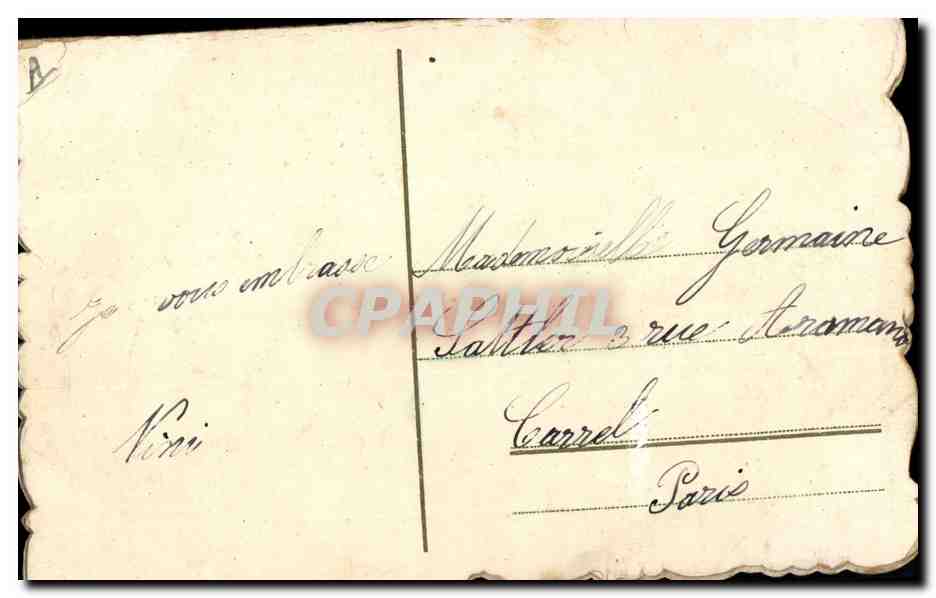 A
Je vous embrasse
Nini
Mademoiselle Germaine
Sattler 3 rue Aramand
Carrel
Paris
CPAPHIL